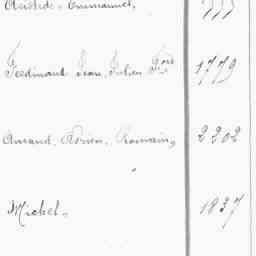 Aristide, Emmanuel, 777
Ferdinand Jean, Julien 1779
Amand, Adrien, Romain, 2202
Michel, 1837